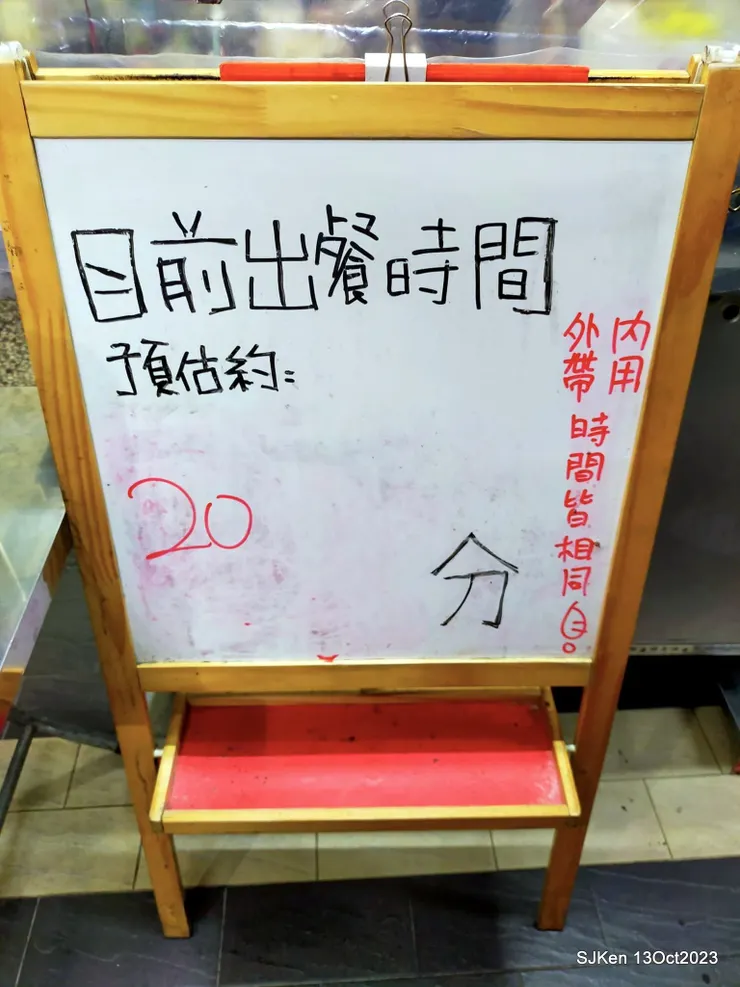 目前出餐時間
預估約：
20 分
內用
外帶 時間皆相同！
SJKen 13Oct2023